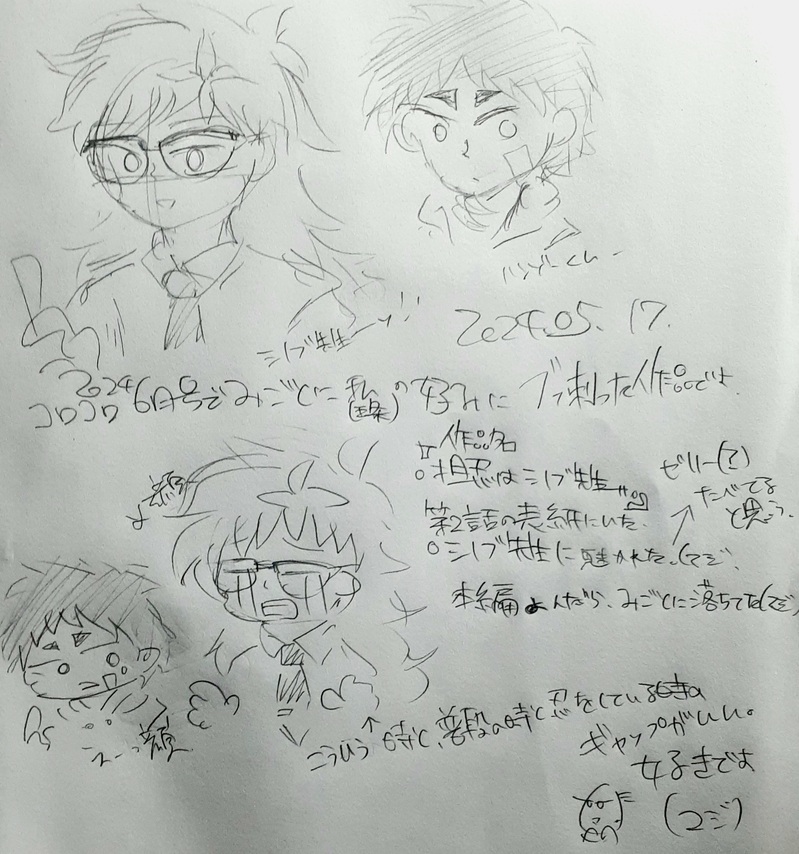 ハンゾーくん
シノブ先生ーッ!!
2024.05.17.
2024
コロコロ6月号でみごとに私の好みにブッ刺った作品です
作品名
○担忍はシノブ先生
第2話の表紙にいた。
○シノブ先生に魅かれた。(マジ)
ゼリー(?)
たべてる
と思う。
本編よんだら、みごとに落ちてた(マジ)
えーっ顔
こういう時と、普段の時と忍をしている時の
ギャップがいい。
好きです
(マジ)